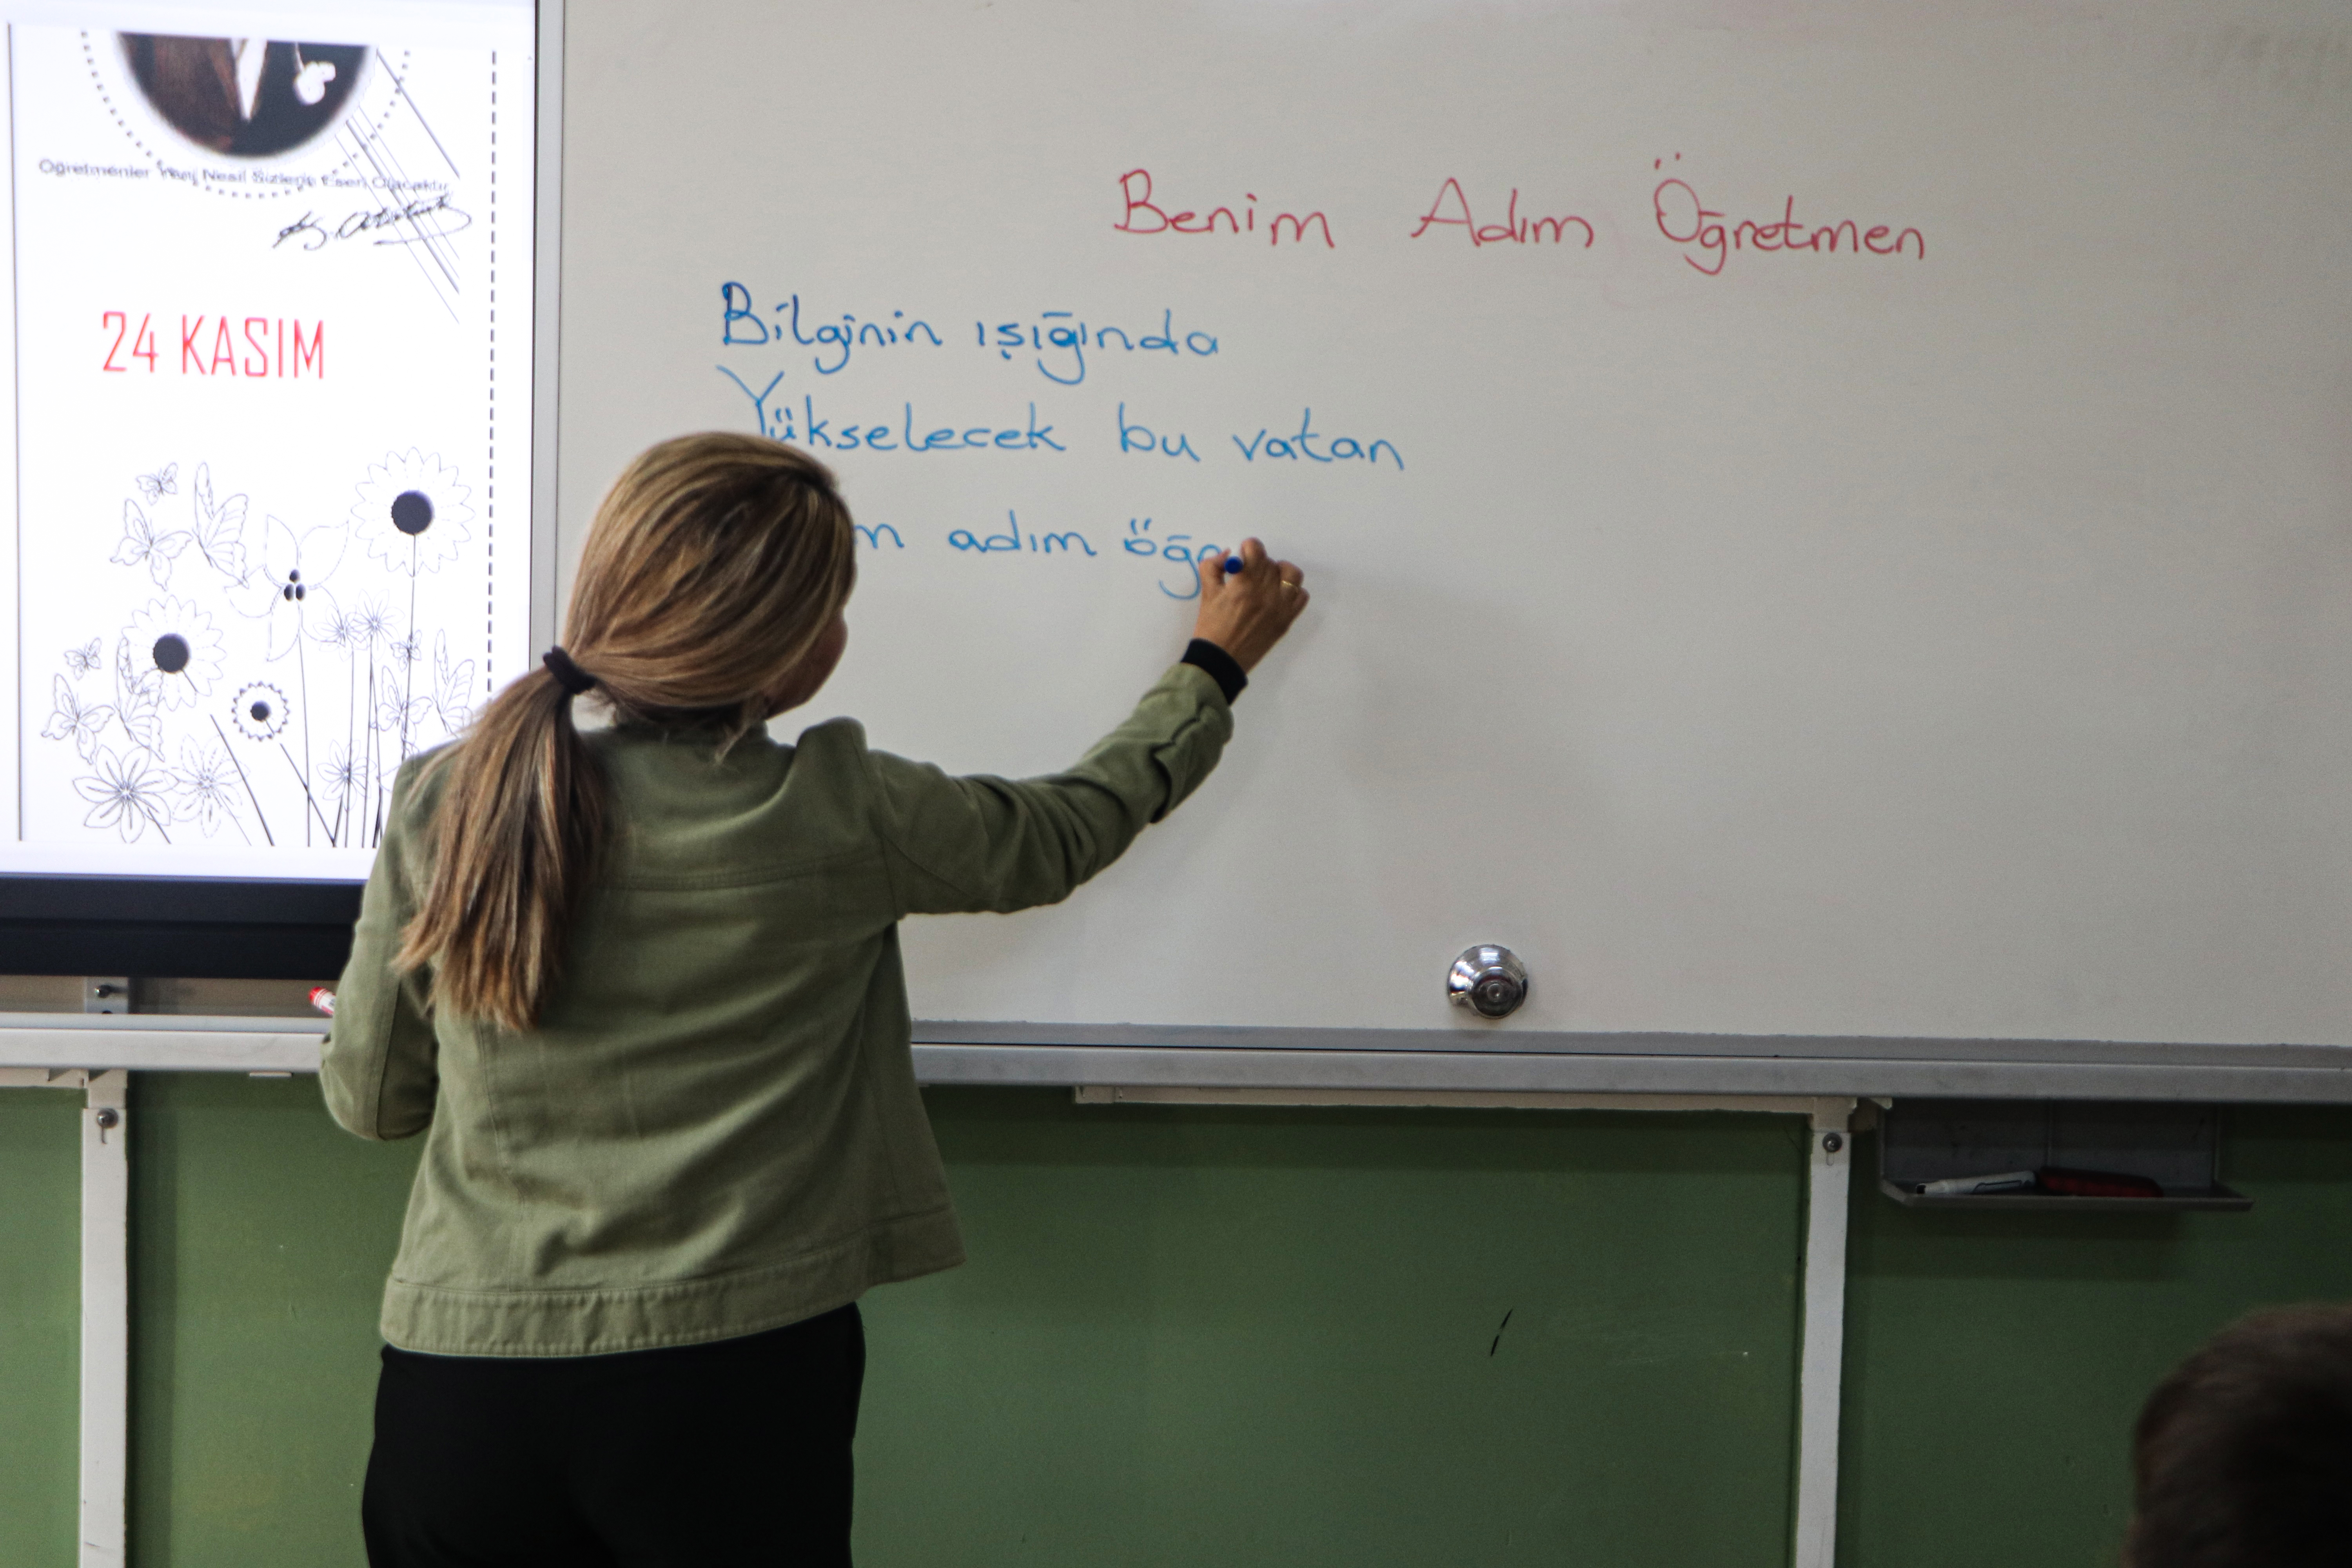 Öğretmenler Yeni Nesil Sizlerin Eseri Olacaktır.
K. Atatürk
24 KASIM
Benim Adım Öğretmen
Bilginin ışığında
Yükselecek bu vatan
adım